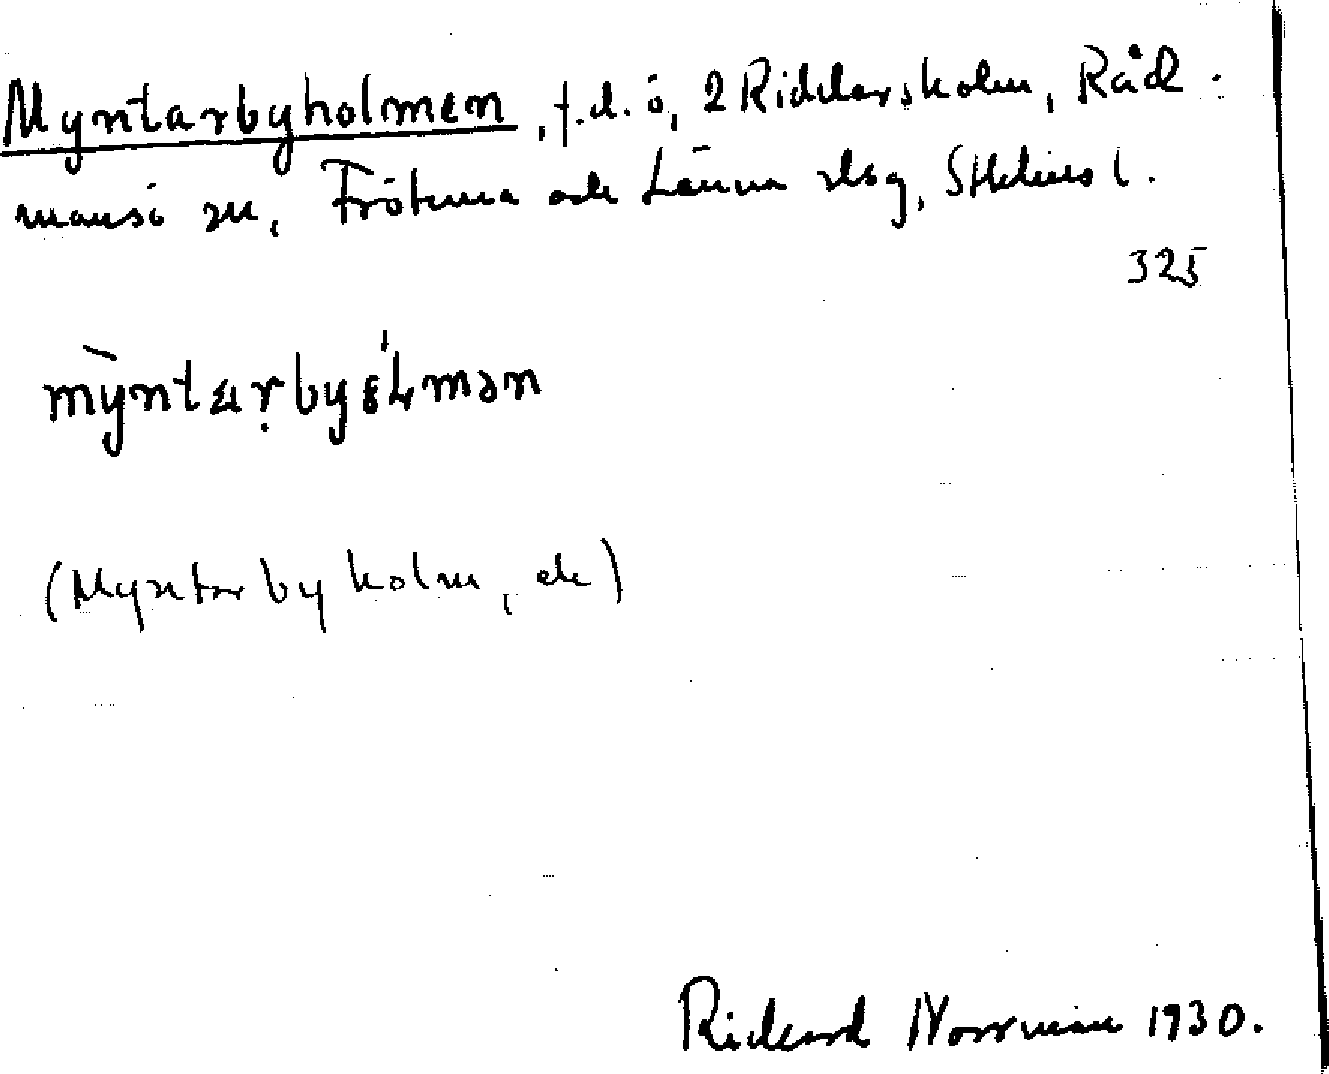 Myntarbyholmen, f.d. ö, 2 Riddersholm, Råd-
mansö sn, Frötuna och Länna slsg, Sthlms l.
325
mỳntarby
(Myntarbyholm, ek)
Rickard Norrman 1930.